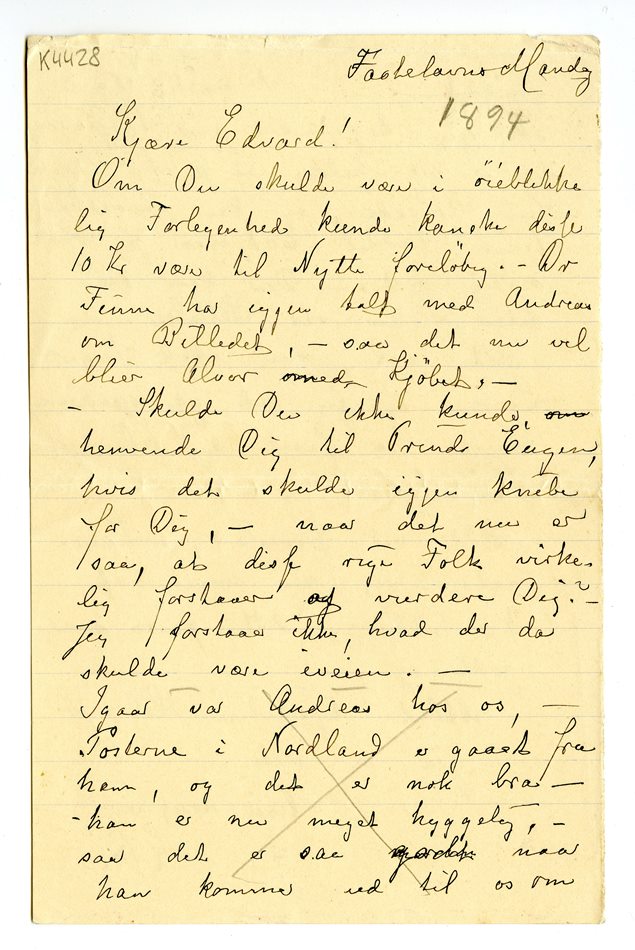 K4428
Fastelavns Mandg
1894
Kjære Edvard!
Om Du skulde være i öieblikke
lig Forlegenhed kunde kanske disse
10 Kr være til Nytte foreløbig. – Dr
Finne har igjen talt med Andreas
om Billedet, – saa det nu vel
bliér Alvor med Kjöbet. –
– Skulde Du ikke kunde om
henvende Dig til Prinds Eugen,
hvis det skulde igjen knibe
for Dig, – naar det nu er
saa, at disse rige Folk virke-
lig forstaaer og vurdere Dig? –
Jeg forstaaer ikke, hvad der da
skulde være iveien. –
Igaar var Andreas hos os, –
Posterne i Nordland er gaaet fra
ham, og det er nok bra –
– han er nu meget hyggelig, –
saa det er saa godt naar
han kommer ud til os om